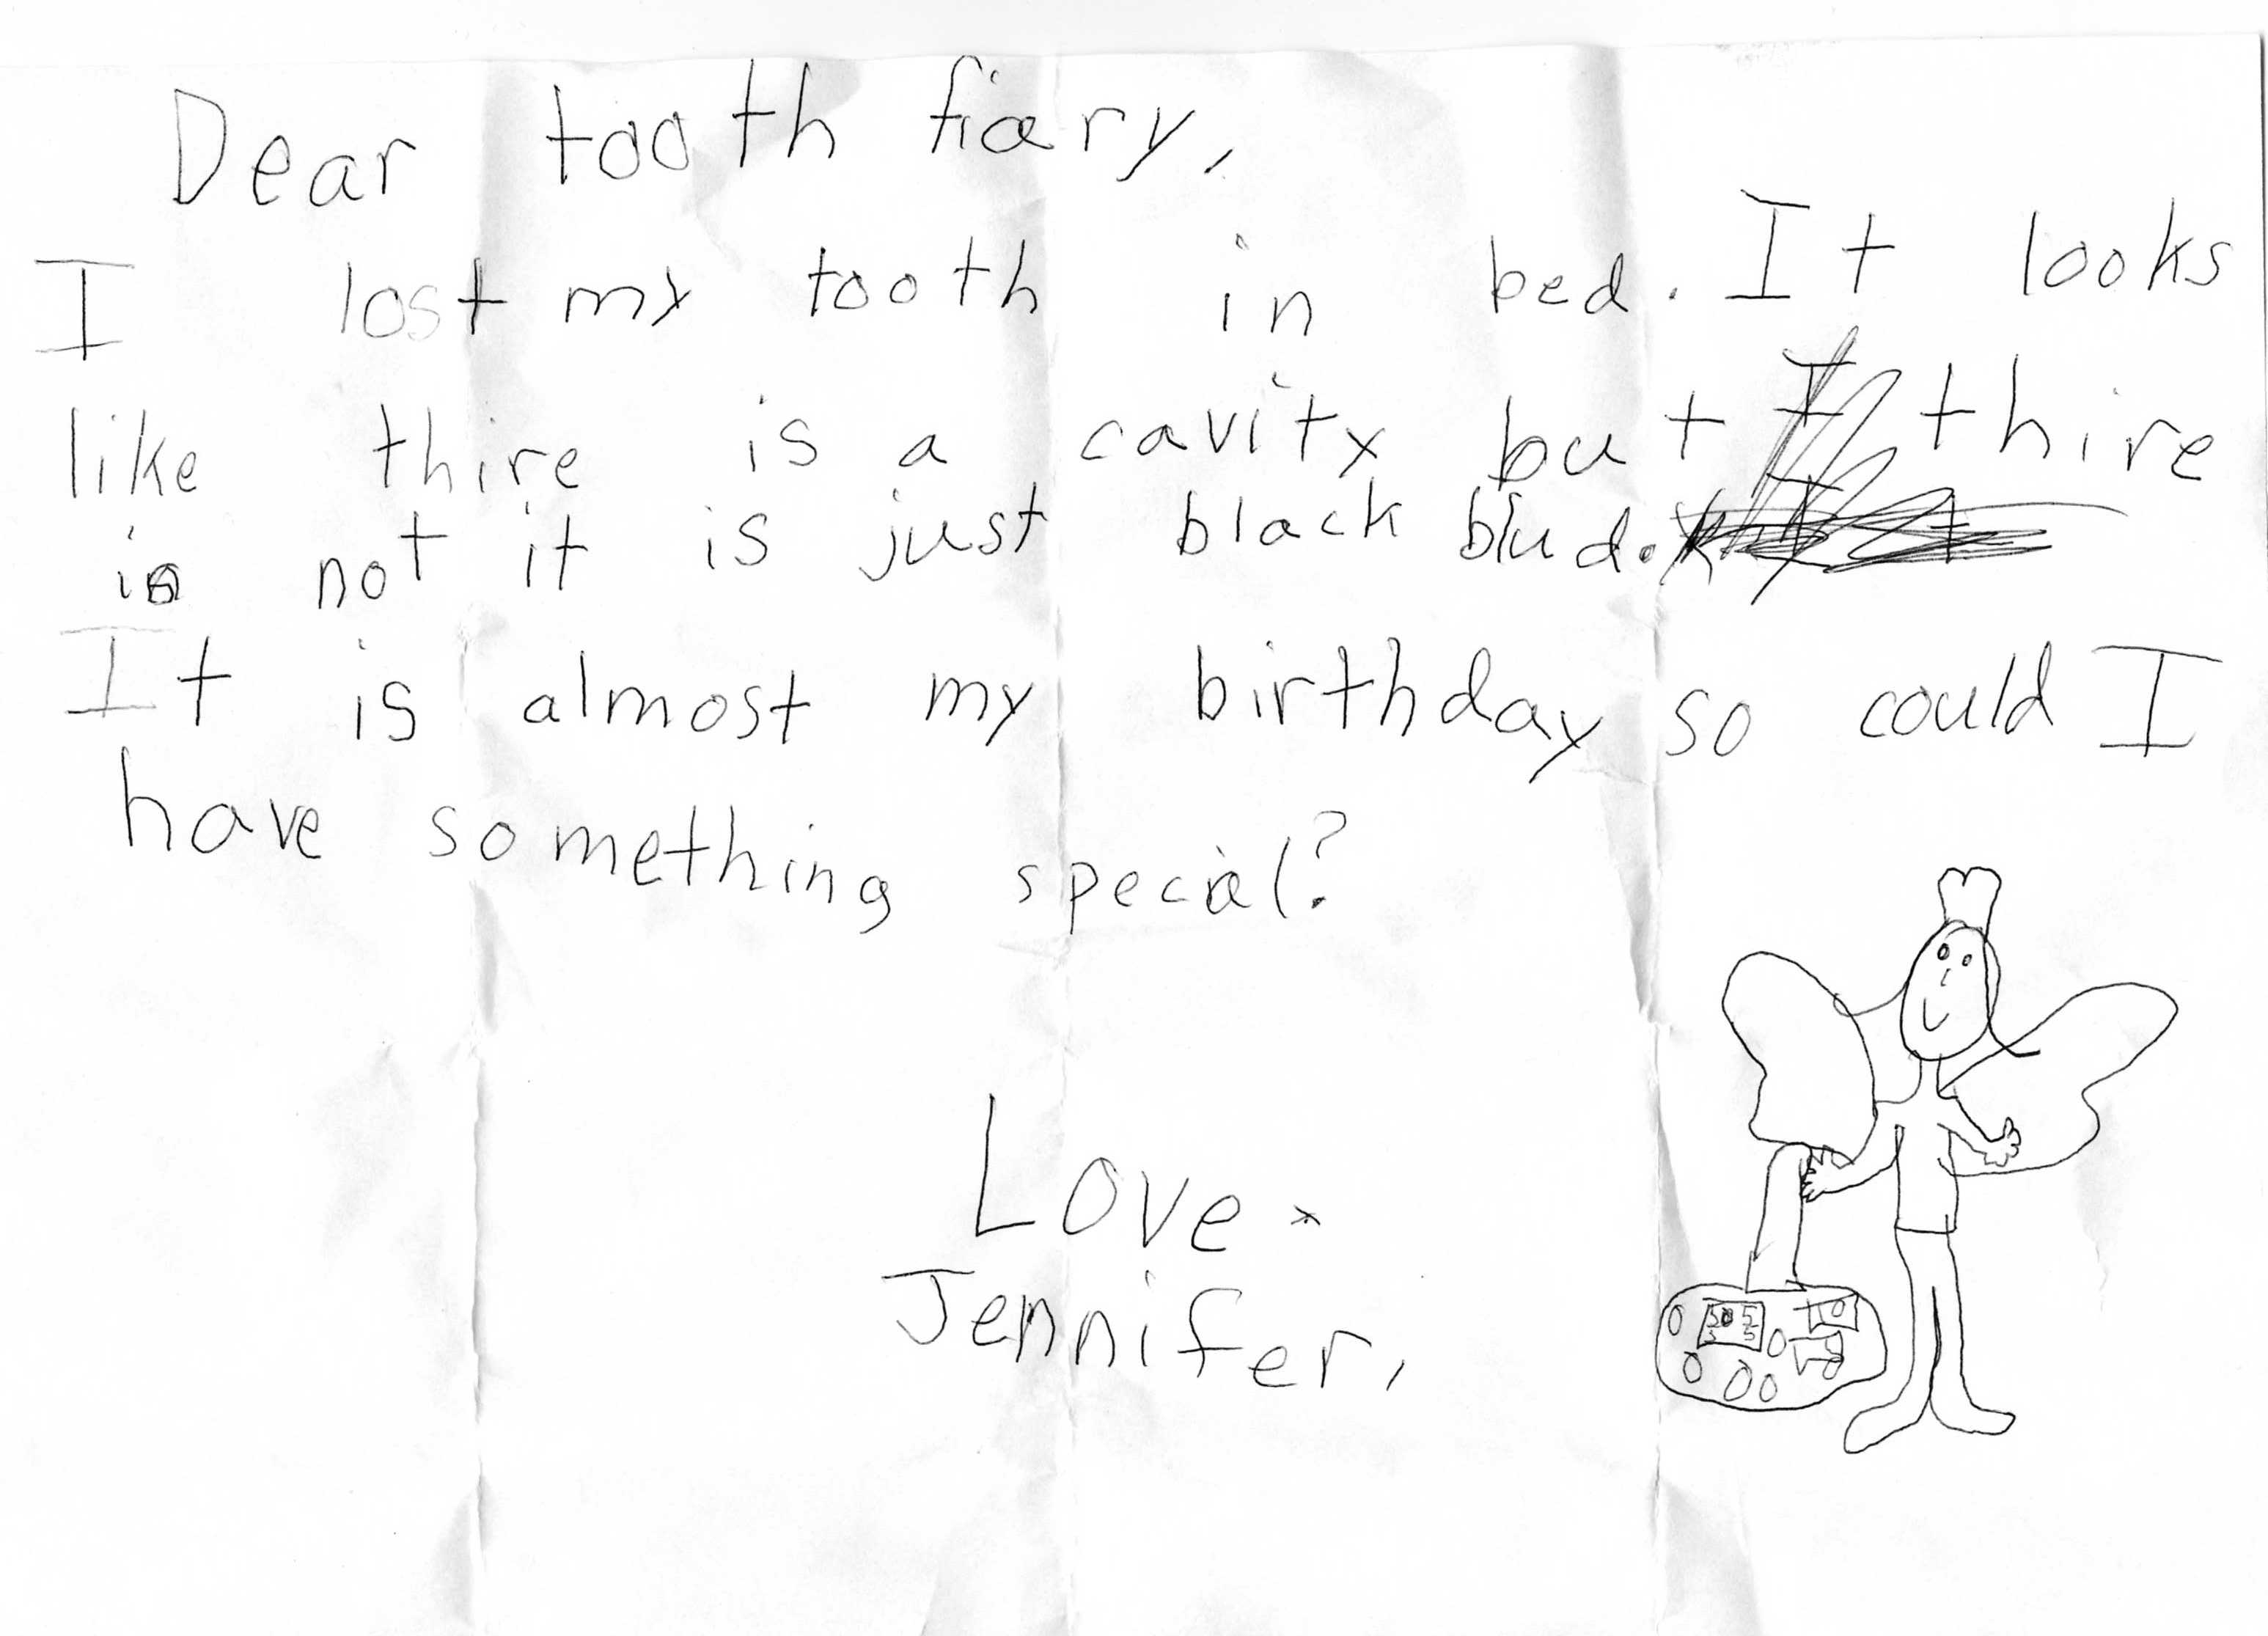 Dear tooth fiary,
I lost my tooth in bed. It looks
like thire is a cavity but thire
is not it is just black blud.
It is almost my birthday so could I
have something special?
Love
Jennifer,